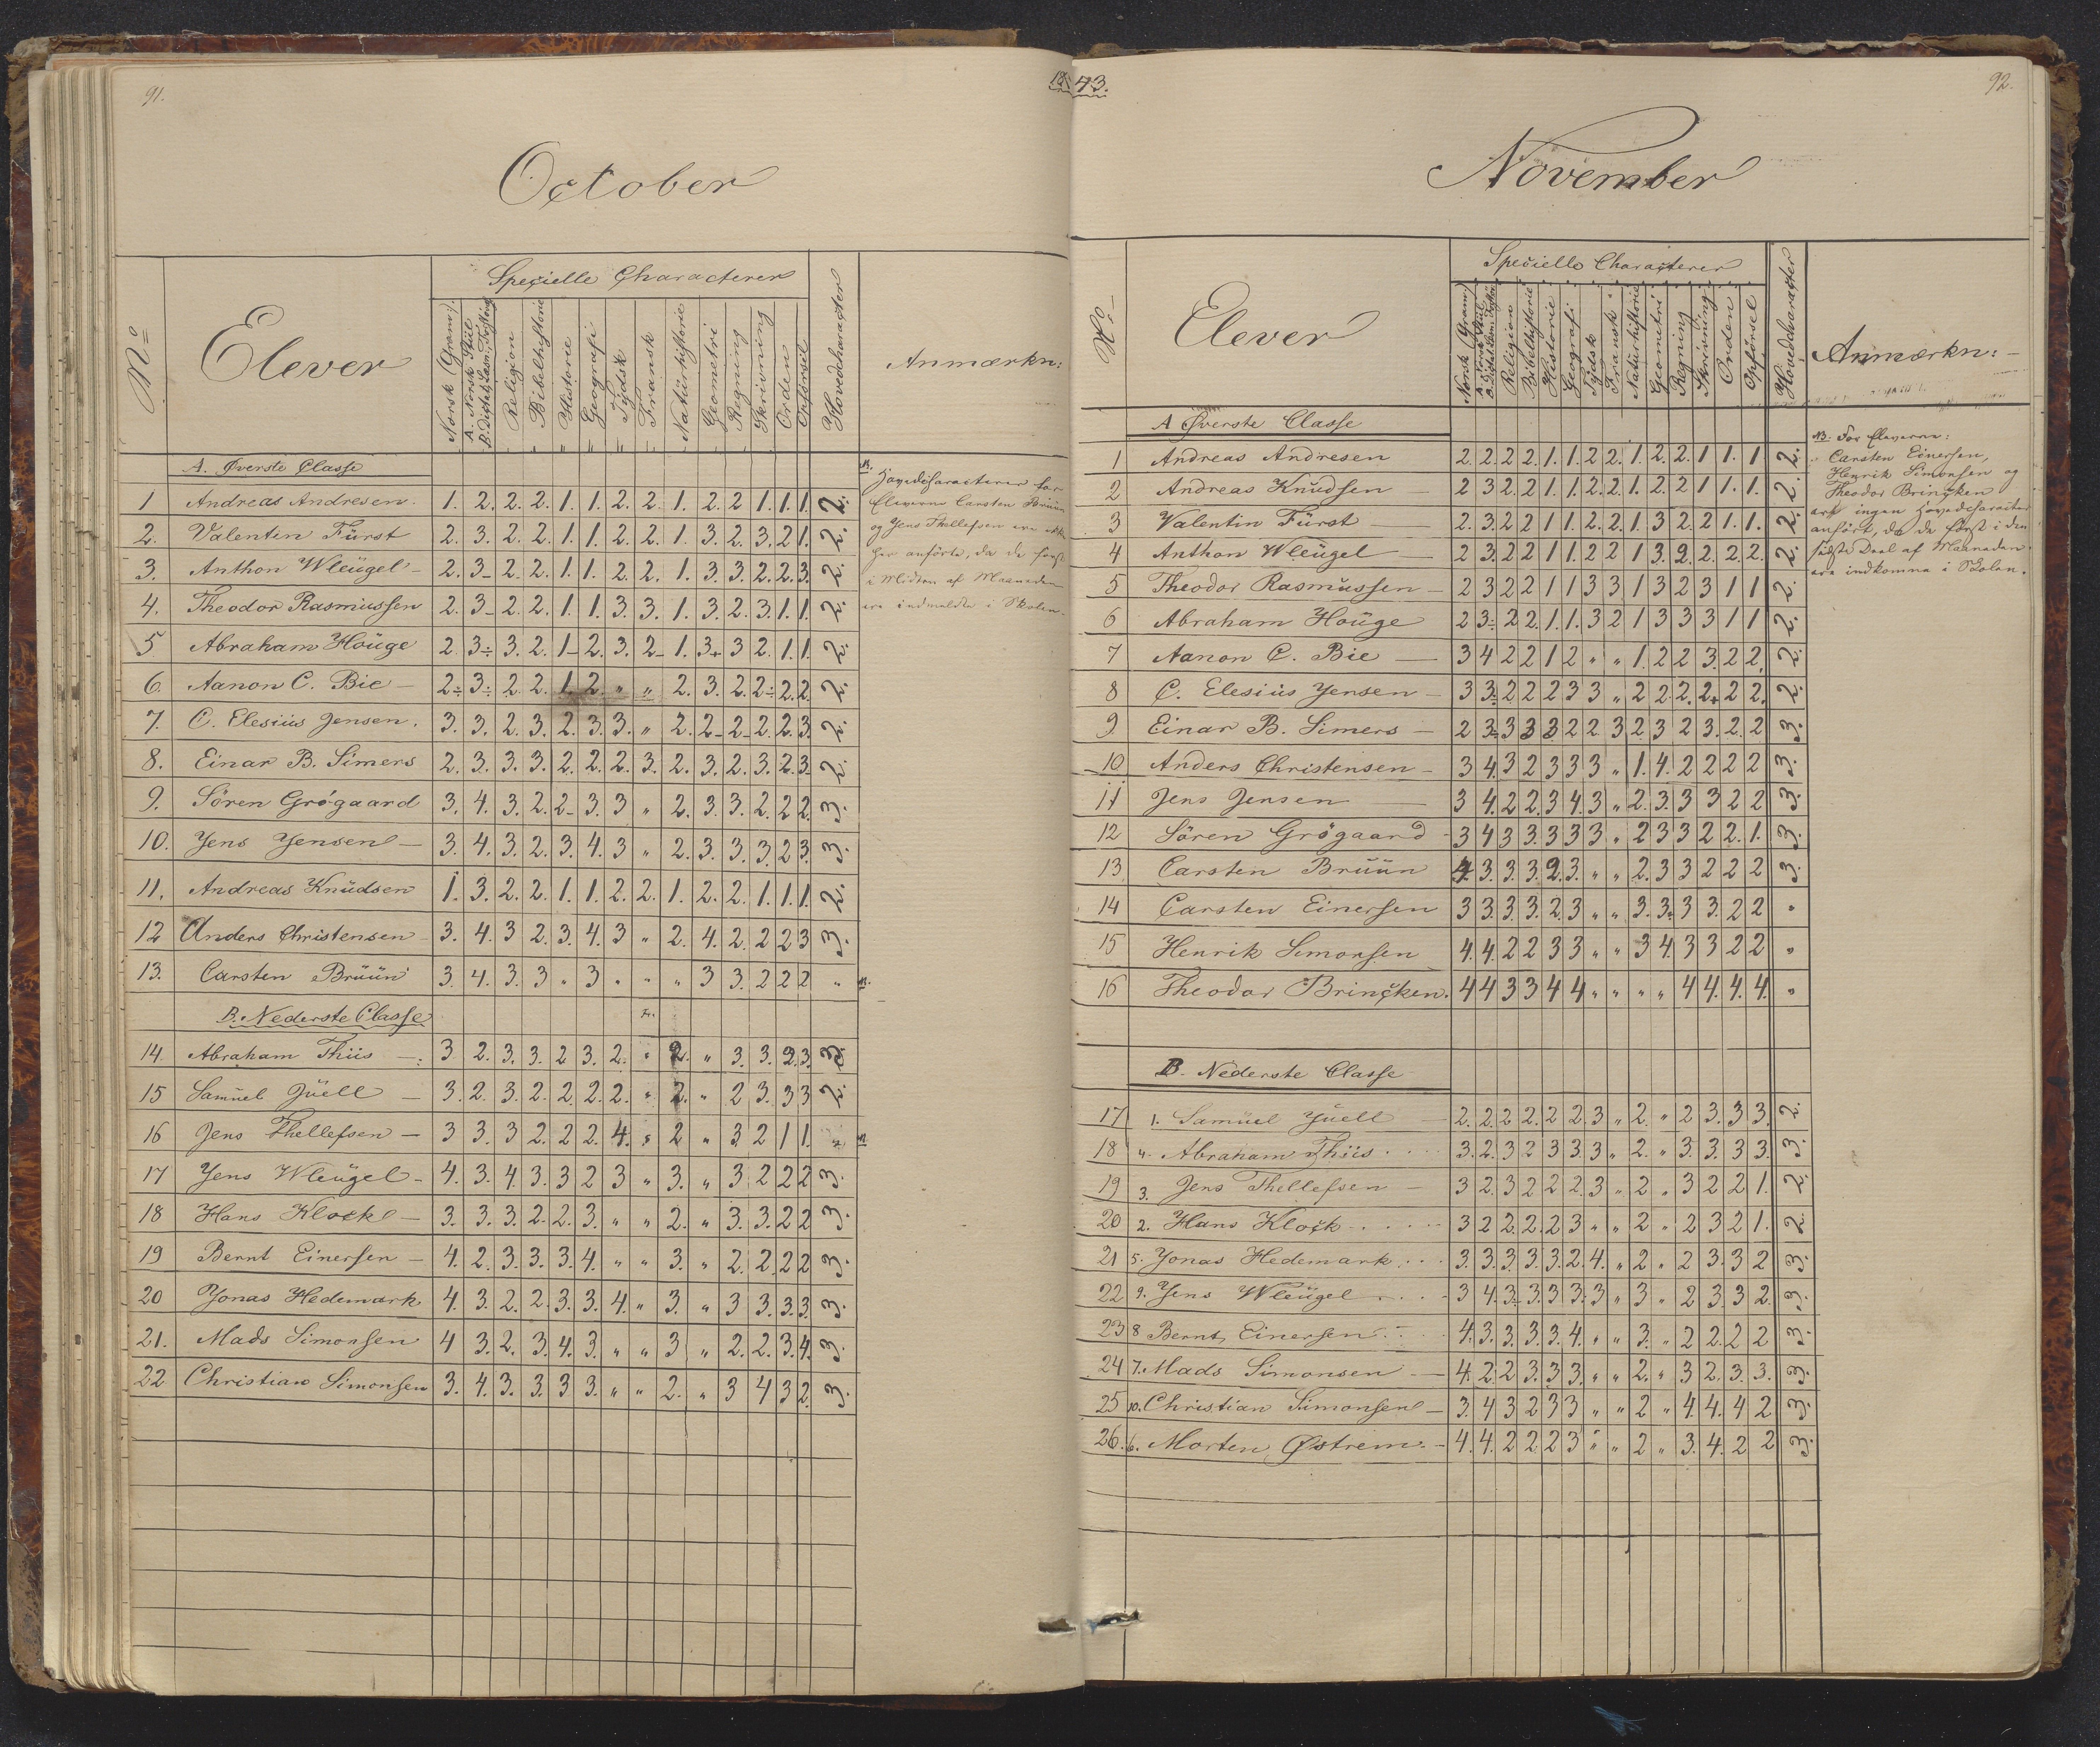 91.
1843.
October
No
Elever
Specielle Characterer
Norsk (Gram).
A. Norsk Stiil
B. Dictat, Læsn, Forstaaelse
Religion
Bibelhistorie
Historie
Geografi
Tydsk
Fransk
Naturhistorie
Geometri
Regning
Skrivning
Orden
Opførsel
Hovedcharacter
Anmærkn:
A. Øverste Classe
1 Andreas Andresen. 1. 2. 2. 2. 1. 1. 2. 2. 1. 2. 2 1. 1. 1. 2.
2. Valentin Fürst 2. 3. 2. 2. 1. 1. 2. 2. 1. 3. 2. 3. 2 1. 2.
3. Anthon Wleügel 2. 3- 2. 2. 1. 1. 2. 2. 1. 3. 3. 2. 2. 3. 2.
4. Theodor Rasmussen 2. 3- 2. 2. 1. 1. 3. 3. 1. 3. 2. 3. 1. 1. 2.
5 Abraham Houge 2. 3÷ 3. 2. 1- 2. 3. 2- 1. 3+ 3 2. 1. 1. 2.
6. Aanon C. Bie 2÷ 3÷ 2. 2. 1. 2. " " 2. 3. 2. 2÷ 2. 2. 2.
7. C. Elesius Jensen. 3. 3. 2. 3. 2. 3. 3. " 2. 2- 2- 2. 2. 3. 2.
8. Einar B. Simers 2. 3. 3. 3. 2. 2. 2. 3. 2. 3. 2. 3. 2. 3. 2.
9. Sören Grøgaard 3. 4. 3. 2. 2- 3. 3 " 2. 3. 3. 2. 2 2. 3.
10. Jens Jensen 3. 4. 3. 2. 3. 4. 3 " 2. 3. 3. 3. 2 3. 3.
11. Andreas Knudsen 1. 3. 2. 2. 1. 1. 2. 2. 1. 2. 2. 1. 1. 1. 2.
12 Anders Christensen 3. 4. 3 2. 3. 4. 3 " 2. 4. 2. 2 2 3 3.
13. Carsten Brüün 3. 4. 3. 3 " 3 " " " 3 3. 2 2 2 " NB.
NB.
Hovedcharacterer for
Eleverne Carsten Brüün
og Jens Thellefsen ere ikke
her anførte, da de først
i Midten af Maaneden
ere indmeldte i Skolen.
B. Nederste Classe Fr.
14. Abraham Thiis 3 2. 3. 3. 2 3. 2. " 2. " 3 3. 2 3. 3.
15 Samuel Jüell 3. 2. 3. 2. 2. 2. 2. " 2. " 2 3. 3 3 2.
16 Jens Thellefsen 3 3. 3 2. 2 2. 4. " 2 " 3. 2 1 1. " NB
17 Jens Wleügel 4. 3. 4. 3. 3 2 3 " 3. " 3 2 2 2 3.
18 Hans Klock 3. 3. 3. 2. 2. 3. " " 2. " 3. 3. 2 2 3.
19 Bernt Einersen 4. 2. 3. 3. 3. 4. " " 3. " 2. 2. 2 2 3.
20 Jonas Hedemark 4. 3. 2. 2. 3. 3. 4. " 3. " 3 3. 3. 3. 3.
21. Mads Simonsen 4 3. 2. 3. 4. 3. " " 3 " 2. 2. 3. 4. 3.
22 Christian Simonsen 3. 4. 3. 3. 3 3. " " 2. " 3 4 3 2. 3.
92.
November
No
Elever
Specielle Characterer
Norsk (Gram).
A. Norsk Stiil
B. Dictat, Læsn. Forst.
Religion
Bibelhistorie
Historie
Geografi
Tydsk
Fransk
Naturhistorie
Geometri
Regning
Skrivning
Orden
Opførsel
Hovedcharacter
Anmærkn:
A Øverste Classe
1 Andreas Andresen 2. 2. 2. 2. 1. 1. 2 2. 1. 2. 2. 1 1. 1 2.
2 Andreas Knudsen 2 3 2. 2 1. 1. 2. 2. 1. 2. 2 1 1. 1. 2.
3 Valentin Fürst 2. 3. 2 2 1 1. 2. 2. 1. 3 2. 2 1. 1. 2.
4 Anthon Wleügel 2 3. 2 2 1 1. 2 2 1 3. 2. 2. 2. 2. 2.
5 Theodor Rasmussen 2 3 2 2 1 1 3 3 1 3 2 3 1 1 2.
6 Abraham Houge 2 3÷ 2 2. 1. 1. 3 2 1 3 3 3 1 1 2.
7 Aanon C. Bie 3 4 2 2 1 2 " " 1. 2 2 3. 2 2. 2.
8 C. Elesius Jensen 3 3÷ 2 2 2 3 3 " 2 2 2. 2+ 2 2. 2.
9. Einar B. Simers 2 3÷ 3 3 3 2 2 3 2 3 2 3. 2. 2 3.
10 Anders Christensen 3 4. 3 2 3 3 3 " 1. 4. 2 2 2 2 3.
11 Jens Jensen 3 4. 2 2. 3 4. 3 " 2. 3. 3 3 2 2 3.
12 Sören Grøgaard 3 4 3 3. 3 3 3 " 2 3 3 2 2. 1. 3.
13. Carsten Brüün 4. 3. 3. 3. 2. 3. " " 2. 3 3 2 2 2 3.
14 Carsten Einersen 3 3. 3. 3. 2. 3 " " 3. 3. 3 3. 2 2 "
15 Henrik Simonsen 4. 4. 2 2 3 3 " " 3 4. 3 3 2 2 "
16 Theodor Brincken. 4 4 3 3 4 4 " " " " 4 4. 4. 4. "
NB. For Eleverne:
Carsten Einersen,
Henrik Simonsen og
Theodor Brincken
ere ingen Hovedcharacter
anført, da de først i den
sidste Deel af Maaneden
ere indkomne i Skolen.
B. Nederste Classe
17 1. Samuel Jüell 2. 2. 2 2. 2 2. 3 " 2. " 2 3. 3 3. 2.
18 4. Abraham Thiis 3. 2. 3 2 3 3 3 " 2. " 3. 3. 3 3. 3.
19 3. Jens Thellefsen 3 2. 3 2 2 2. 3 " 2 " 3 2 2 1. 2.
20 2. Hans Klock 3 2 2. 2. 2 3 " " 2 " 2 3 2 1. 2.
21 5. Jonas Hedemark 3. 3. 3. 3. 3. 2. 4. " 2 " 2 3 3 2 3.
22 9. Jens Wleügel 3 4. 3÷ 3. 3 3. 3 " 3 " 2 3 3 2. 3.
23 8 Bernt Einersen 4. 3. 3. 3. 3. 4. " " 3. " 2 2. 2 2 3.
24 7. Mads Simonsen 4. 2. 2 3. 3 3. " " 2. " 3 2. 3. 3. 3.
25 10. Christian Simonsen 3. 4 3 2 3 3 " " 2 " 4. 4. 4 2 3.
26. 6. Morten Østrem. 4. 4. 2 2 2 3 " " 2 " 3. 4. 2 2 3.